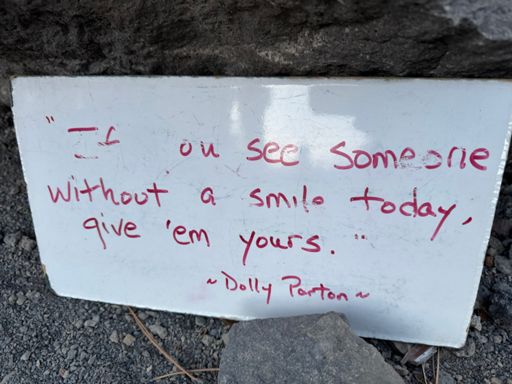 "If ou see someone
without a smile today,
give 'em yours."
~Dolly Parton~